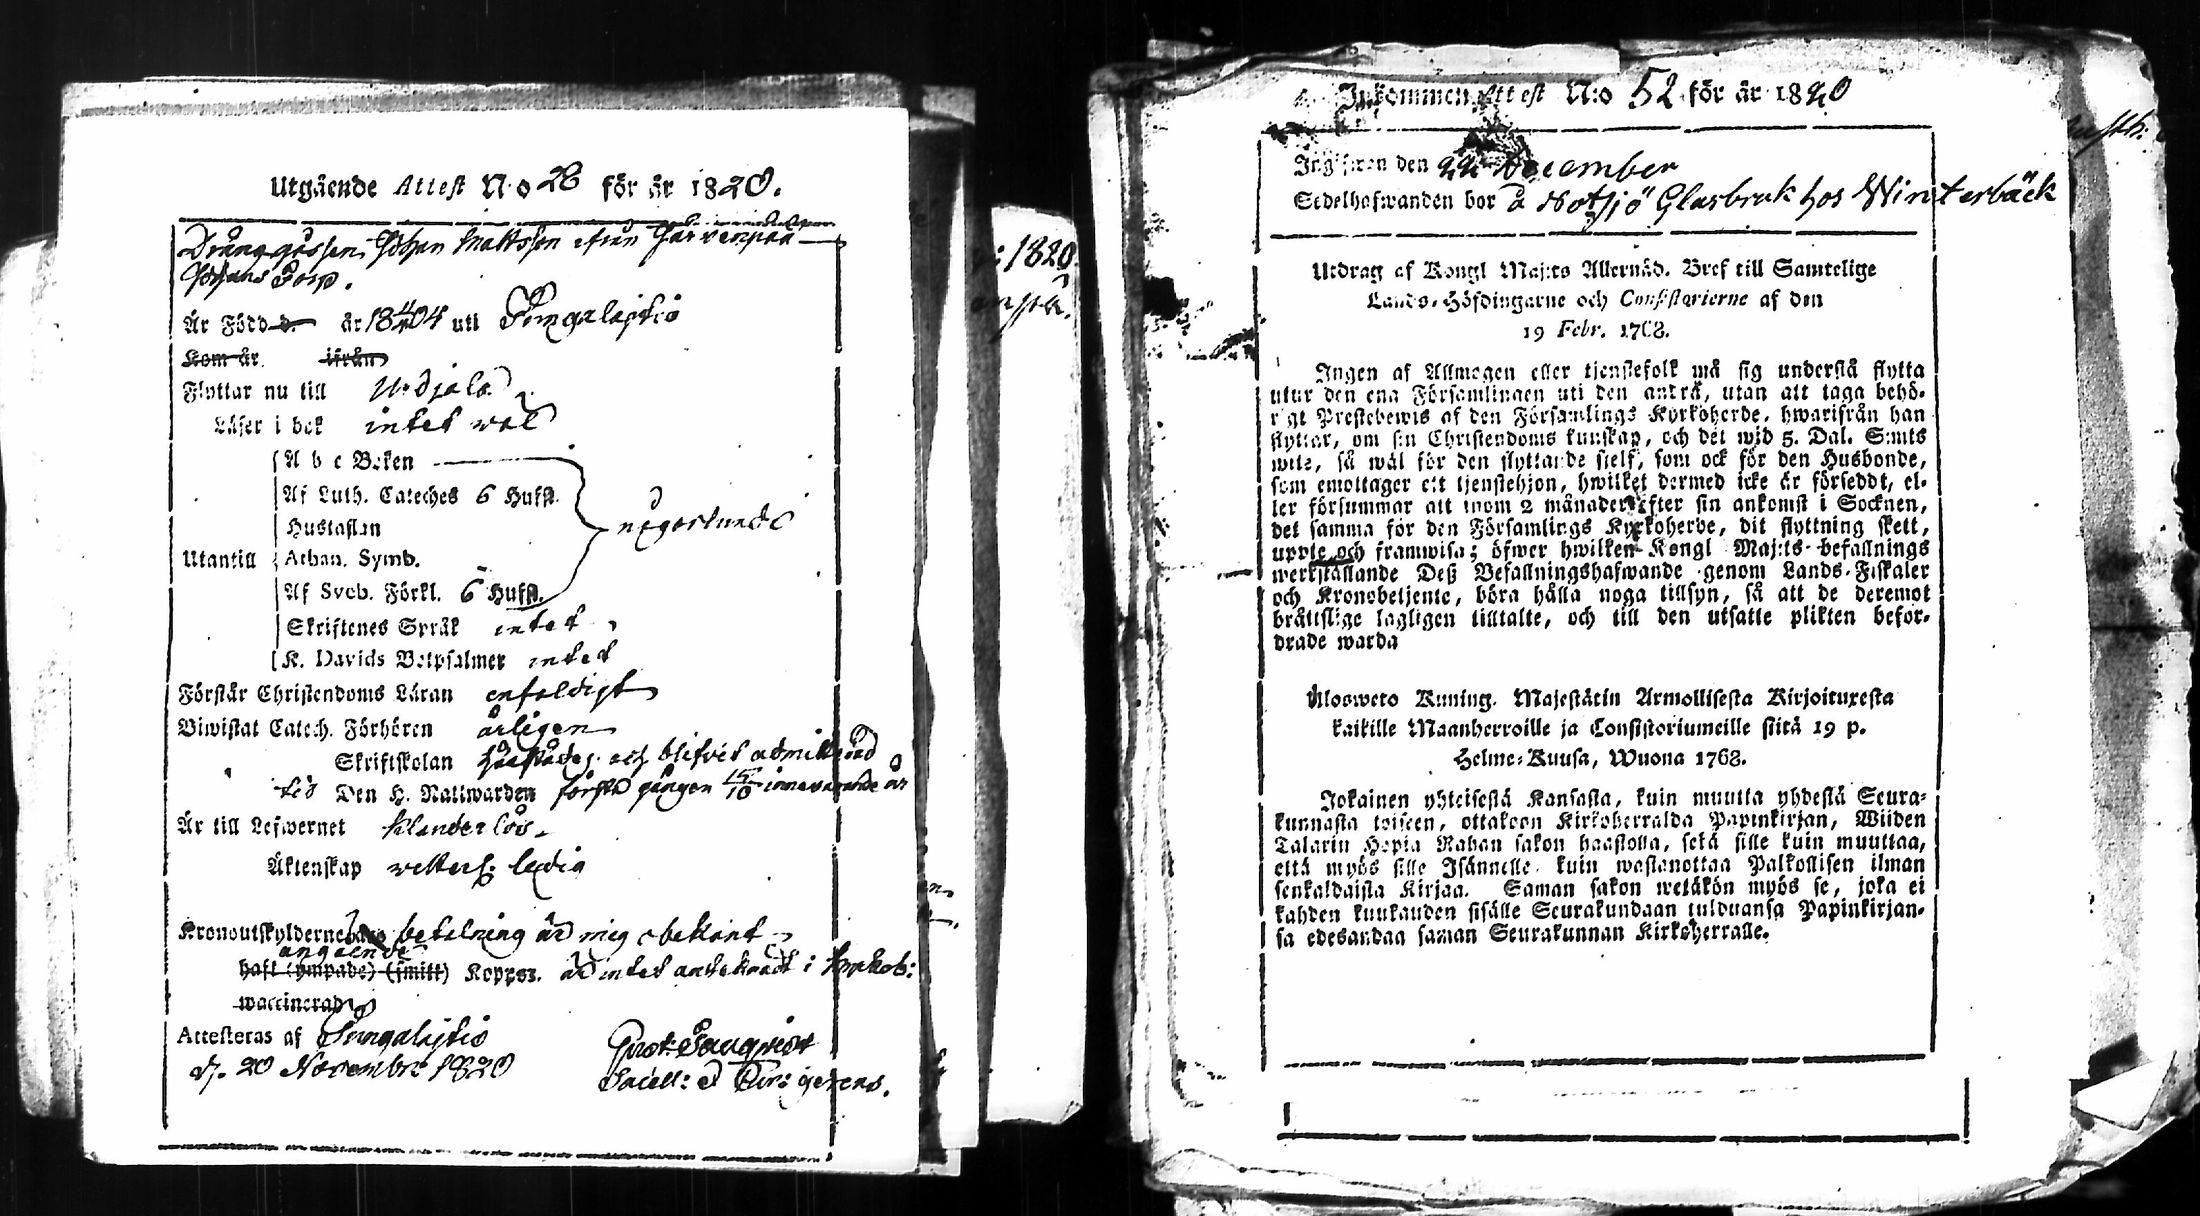 Utgående Attest N:o 28 för år 1820.
Dränggåssen Johan Mattsson ifrån Järvenpää
Johans Torp.
Är Född d. år 1804 uti Pungalaitio
Kom år ifrån
Flyttar nu till Urdjala
Läser i bok intet wäl
A b c Boken
Af Luth. Cateches 6 Hufst.
Hustaflan
någorlunda
Utantill Athan. Symb.
Af Sveb. Förkl. 6 Hufst.
Skriftenes Språk intet
K. Davids Botpsalmer intet
Förstår Christendoms Läran enfaldigt
Biwistat Catech. Förhören årligen
Skriftskolan och blifvit admitterad
Den H. Nattwarden första gången 15/10 innevarande år
Är till Lefwernet klanderlös.
Äktenskap ledig
Kronoutskylderne betalning är mig obekant
angående
haft (ympade) (smitt) Koppor. är intet antecknadt i Kyrkob:
waccinerad
Attesteras af Pungalaitio
d. 20 Novembr: 1820
Sacell: & gerens.
: 1820
Inkommen Attest N:o 52 för år 1820
Ingifwen den 22 December
Sedelhafwanden bor å Notsjö Glasbruk hos Winterbäck
Utdrag af Kongl Maj:ts Allernåd. Bref till Samtelige
Lands-Höfdingarne och Consistorierne af den
19 Febr. 1768.
Ingen af Allmogen eller tjenstefolk må sig understå flytta
utur den ena Församlingen uti den andra, utan att taga behö-
rigt Prestebewis af den Församlings Kyrkoherde, hwarifrån han
flyttar, om sin Christendoms kunskap, och det wid 5. Dal. S:mts
wite, så wäl för den flyttande sjelf, som ock för den Husbonde,
som emottager ett tjenstehjon, hwilket dermed icke är försedt, el-
ler försummar att inom 2 månader efter sin ankomst i Socknen,
det samma för den Församlings Kyrkoherde, dit flyttning skett,
uppte och framwisa; öfwer hwilken Kongl Maj:ts befallnings
werkställande Deß Befallningshafwande genom Lands-Fiskaler
och Kronobetjente, böra hålla noga tillsyn, så att de deremot
bråttslige lagligen tilltalte, och till den utsatte plikten befor-
drade warda
Ulosweto Kuning. Majestätin Armollisesta Kirjoituxesta
kaikille Maanherroille ja Consistoriumeille siitä 19 p.
Helme-Kuusa, Wuona 1768.
Jokainen yhteisestä Kansasta, kuin muutta yhdestä Seura-
kunnasta toiseen, ottakoon Kirkoherralda Papinkirjan, Wiiden
Talarin Hopia Rahan sakon haastolla, sekä sille kuin muuttaa,
että myös sille Isännelle kuin wastanottaa Palkollisen ilman
senkaldaista Kirjaa. Saman sakon wetäkön myös se, joka ei
kahden kuukauden sisälle Seurakundaan tulduansa Papinkirjan-
sa edesandaa saman Seurakunnan Kirkoherralle.